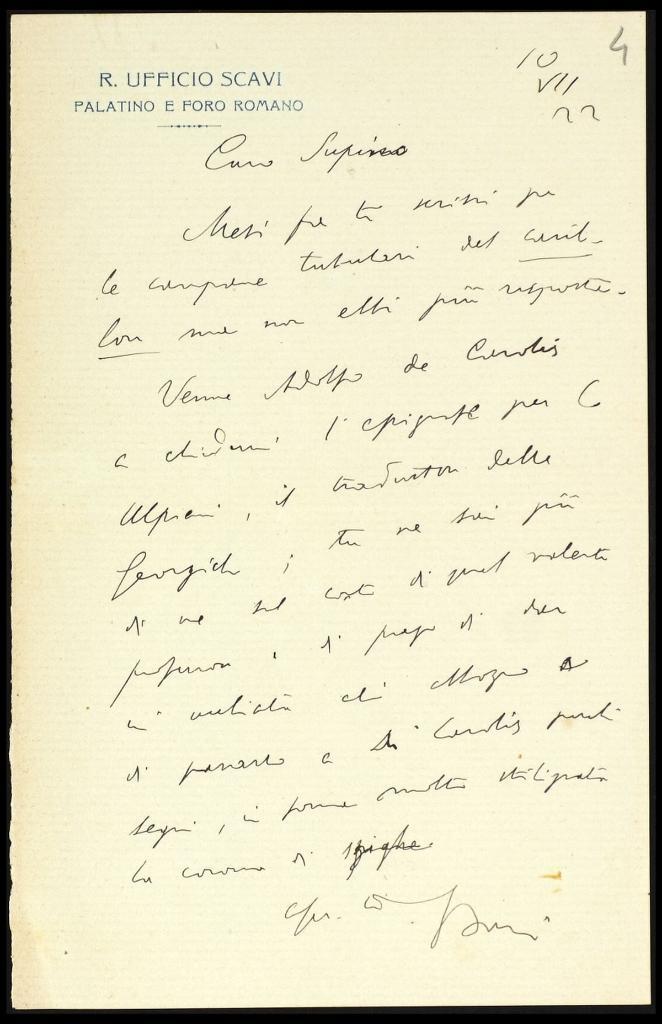 4
R. UFFICIO SCAVI
PALATINO E FORO ROMANO
10
VII
22
Caro Supino
Mesi fa ti scrissi per
le campane tubulari del caril-
lon ma non ebbi più risposta.
Venne Adolfo de Carolis
a chiedermi l'epigrafe per C
Ulpiani, il traduttore delle
Georgiche; tu ne sai più
di me sul conto di quel valente
professore, ti prego di
di passarlo a De Carolis perché
segni, in forma molto stilizzata
la corona di spighe.
Boni